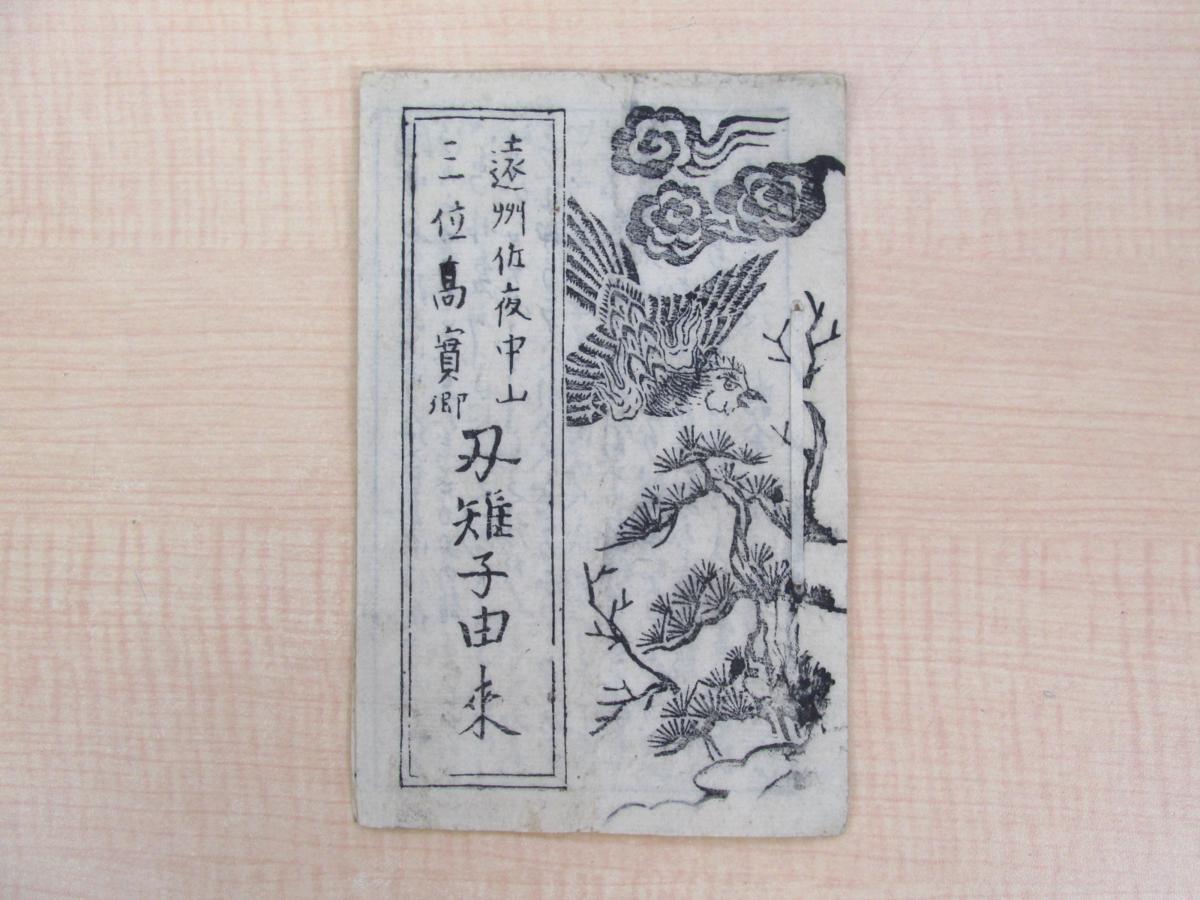 遠州佐夜中山
三位高實卿
刃雉子由来